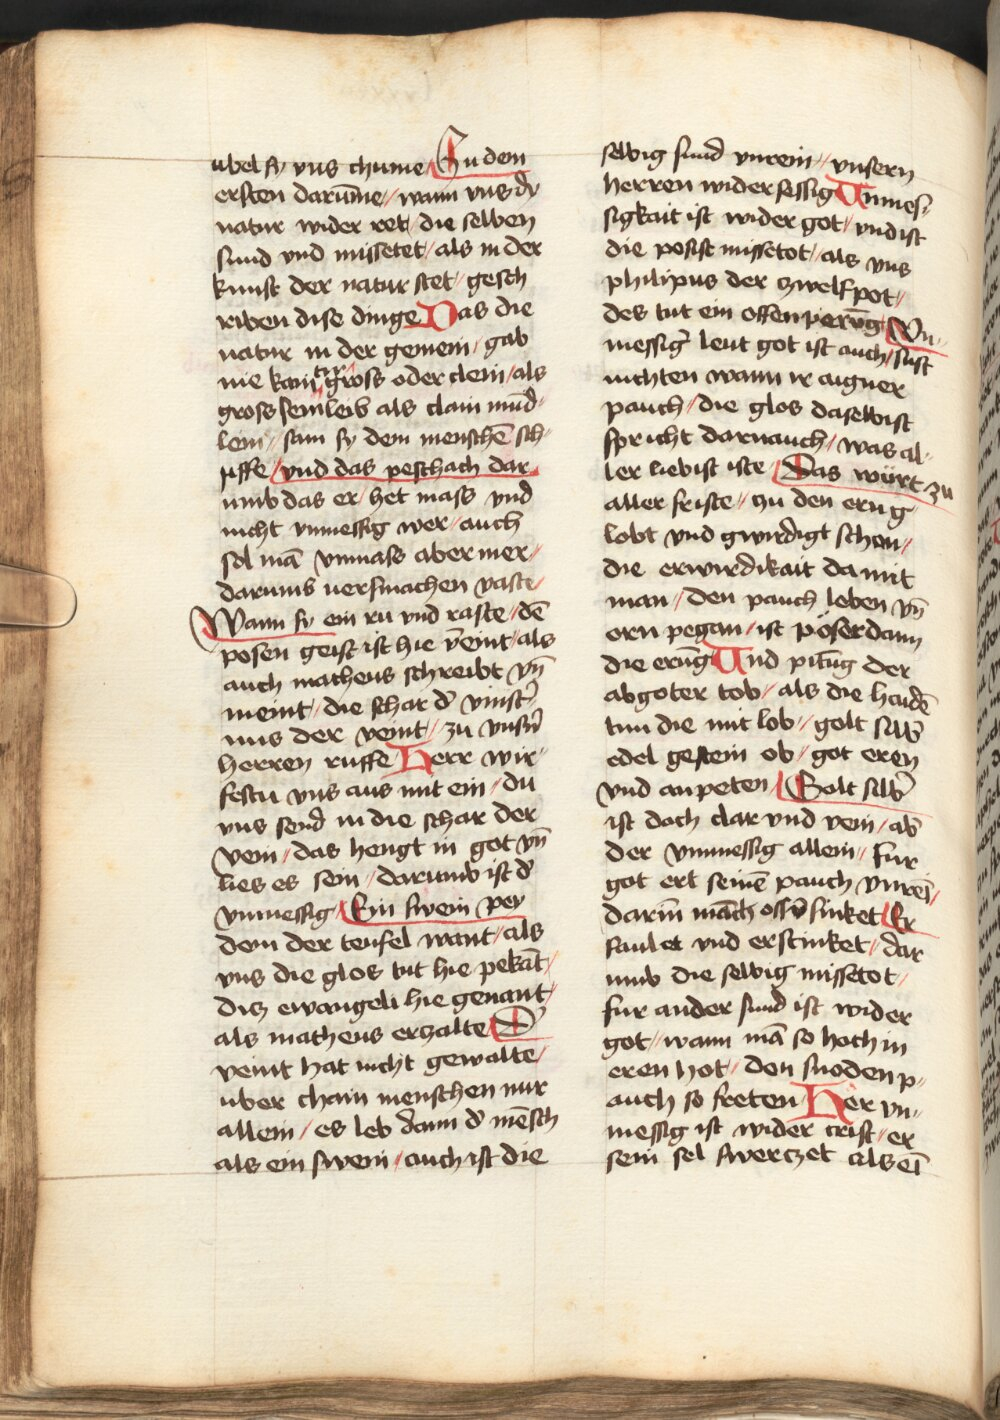 ubel sy vns chume / Zu dem
ersten darum̄e / wann vns dy
natur wider ret / die selben
sund vnd missetet / als in der
kunst der natur stet / gesch
riben dise dinge Das die
natur in der gemein / gab
nie kain tyr gross oder clein / als
gross sein leib als clain mūd
lein / sam sy dem menschē sch
uffe / vnd das peschach dar
umb das er / het mass vnd
nicht vnmessig wer / auch
sol mā vnmass aber mer /
darumb uersmachen vaste /
Wann sy ein ru vnd raste / dē
posen geist ist hie v̄eint / als
auch matheus schreibt vn̄
meint / die schar d' vinst'
nus der veint / zu vnsn̄
herren ruffe / Herr wir
festu vns aus mit ein / du
vns send in die schar der
swein / das hengt in got vn̄
lies es sein / darumb ist d'
vnmessig / Ein swein pey
dem der teufel want / als
vns die glos tut hie pekāt /
diz ewangeli hie genant /
als matheus erzalte / D'
veint hat nicht gewalte /
uber chain menschen nur
allein / es leb dann d' mēsch
als ein swein / auch ist die
selbig sund vnrein / vnsern
herren wider sessig Vnmes
sigkait ist wider got / vnd ist
die posist missetot / als vns
philipus der zwelfpot /
des tut ein offenperūg / Vn
messig' leut got ist auch / sust
nichten wann ir aigner
pauch / die glos daselbist
spricht darnauch / was al
ler liebist iste / Das würt zu
aller friste / zu den erng
lobt vnd gwirdigt schon /
die erwirdikait da mit
man / den pauch loben vn̄
ern pegan / ist pöser dann
die erūg Vnd pitūg der
abgoter tob / als die haidē
tun die mit lob / golt silb'
edel gestein ob / got eren
vnd anpeten / Golt silb'
ist doch clar vnd vein / ab'
der vnmessig allein / fur
got ert seinē pauch vnrei /
darin māch sinket Er
faulet vnd erstinket / dar
umb die selbig missetot /
fur ander sund ist wider
got / wann mā so hoch in
eren hot / den snoden p
auch so freten / Her vn
messig ist wider crist / er
sein sel swerczet als eī